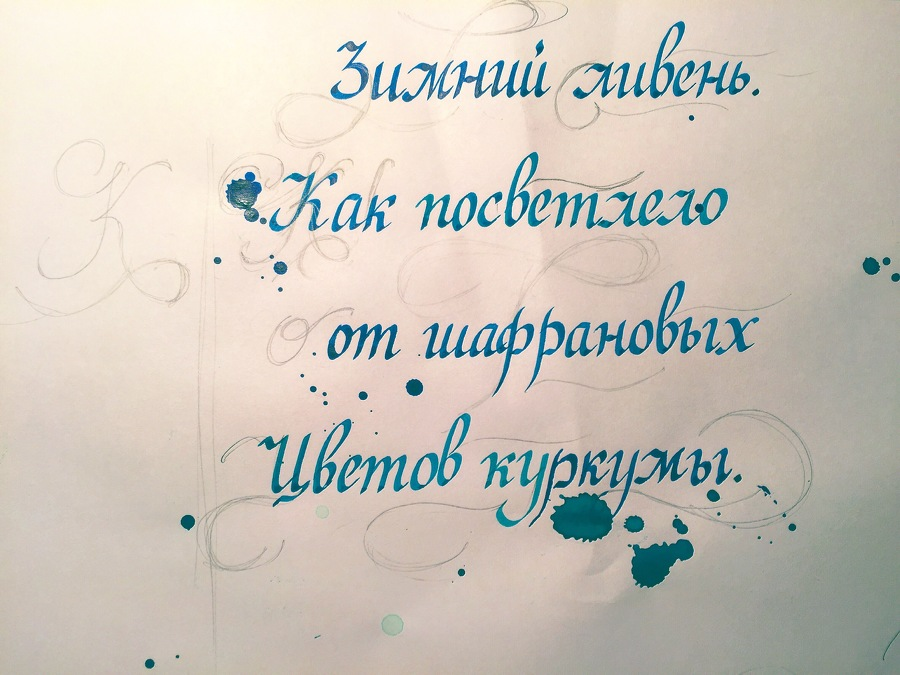 Зимний ливень.
Как посветлело
от шафрановых
Цветов куркумы.